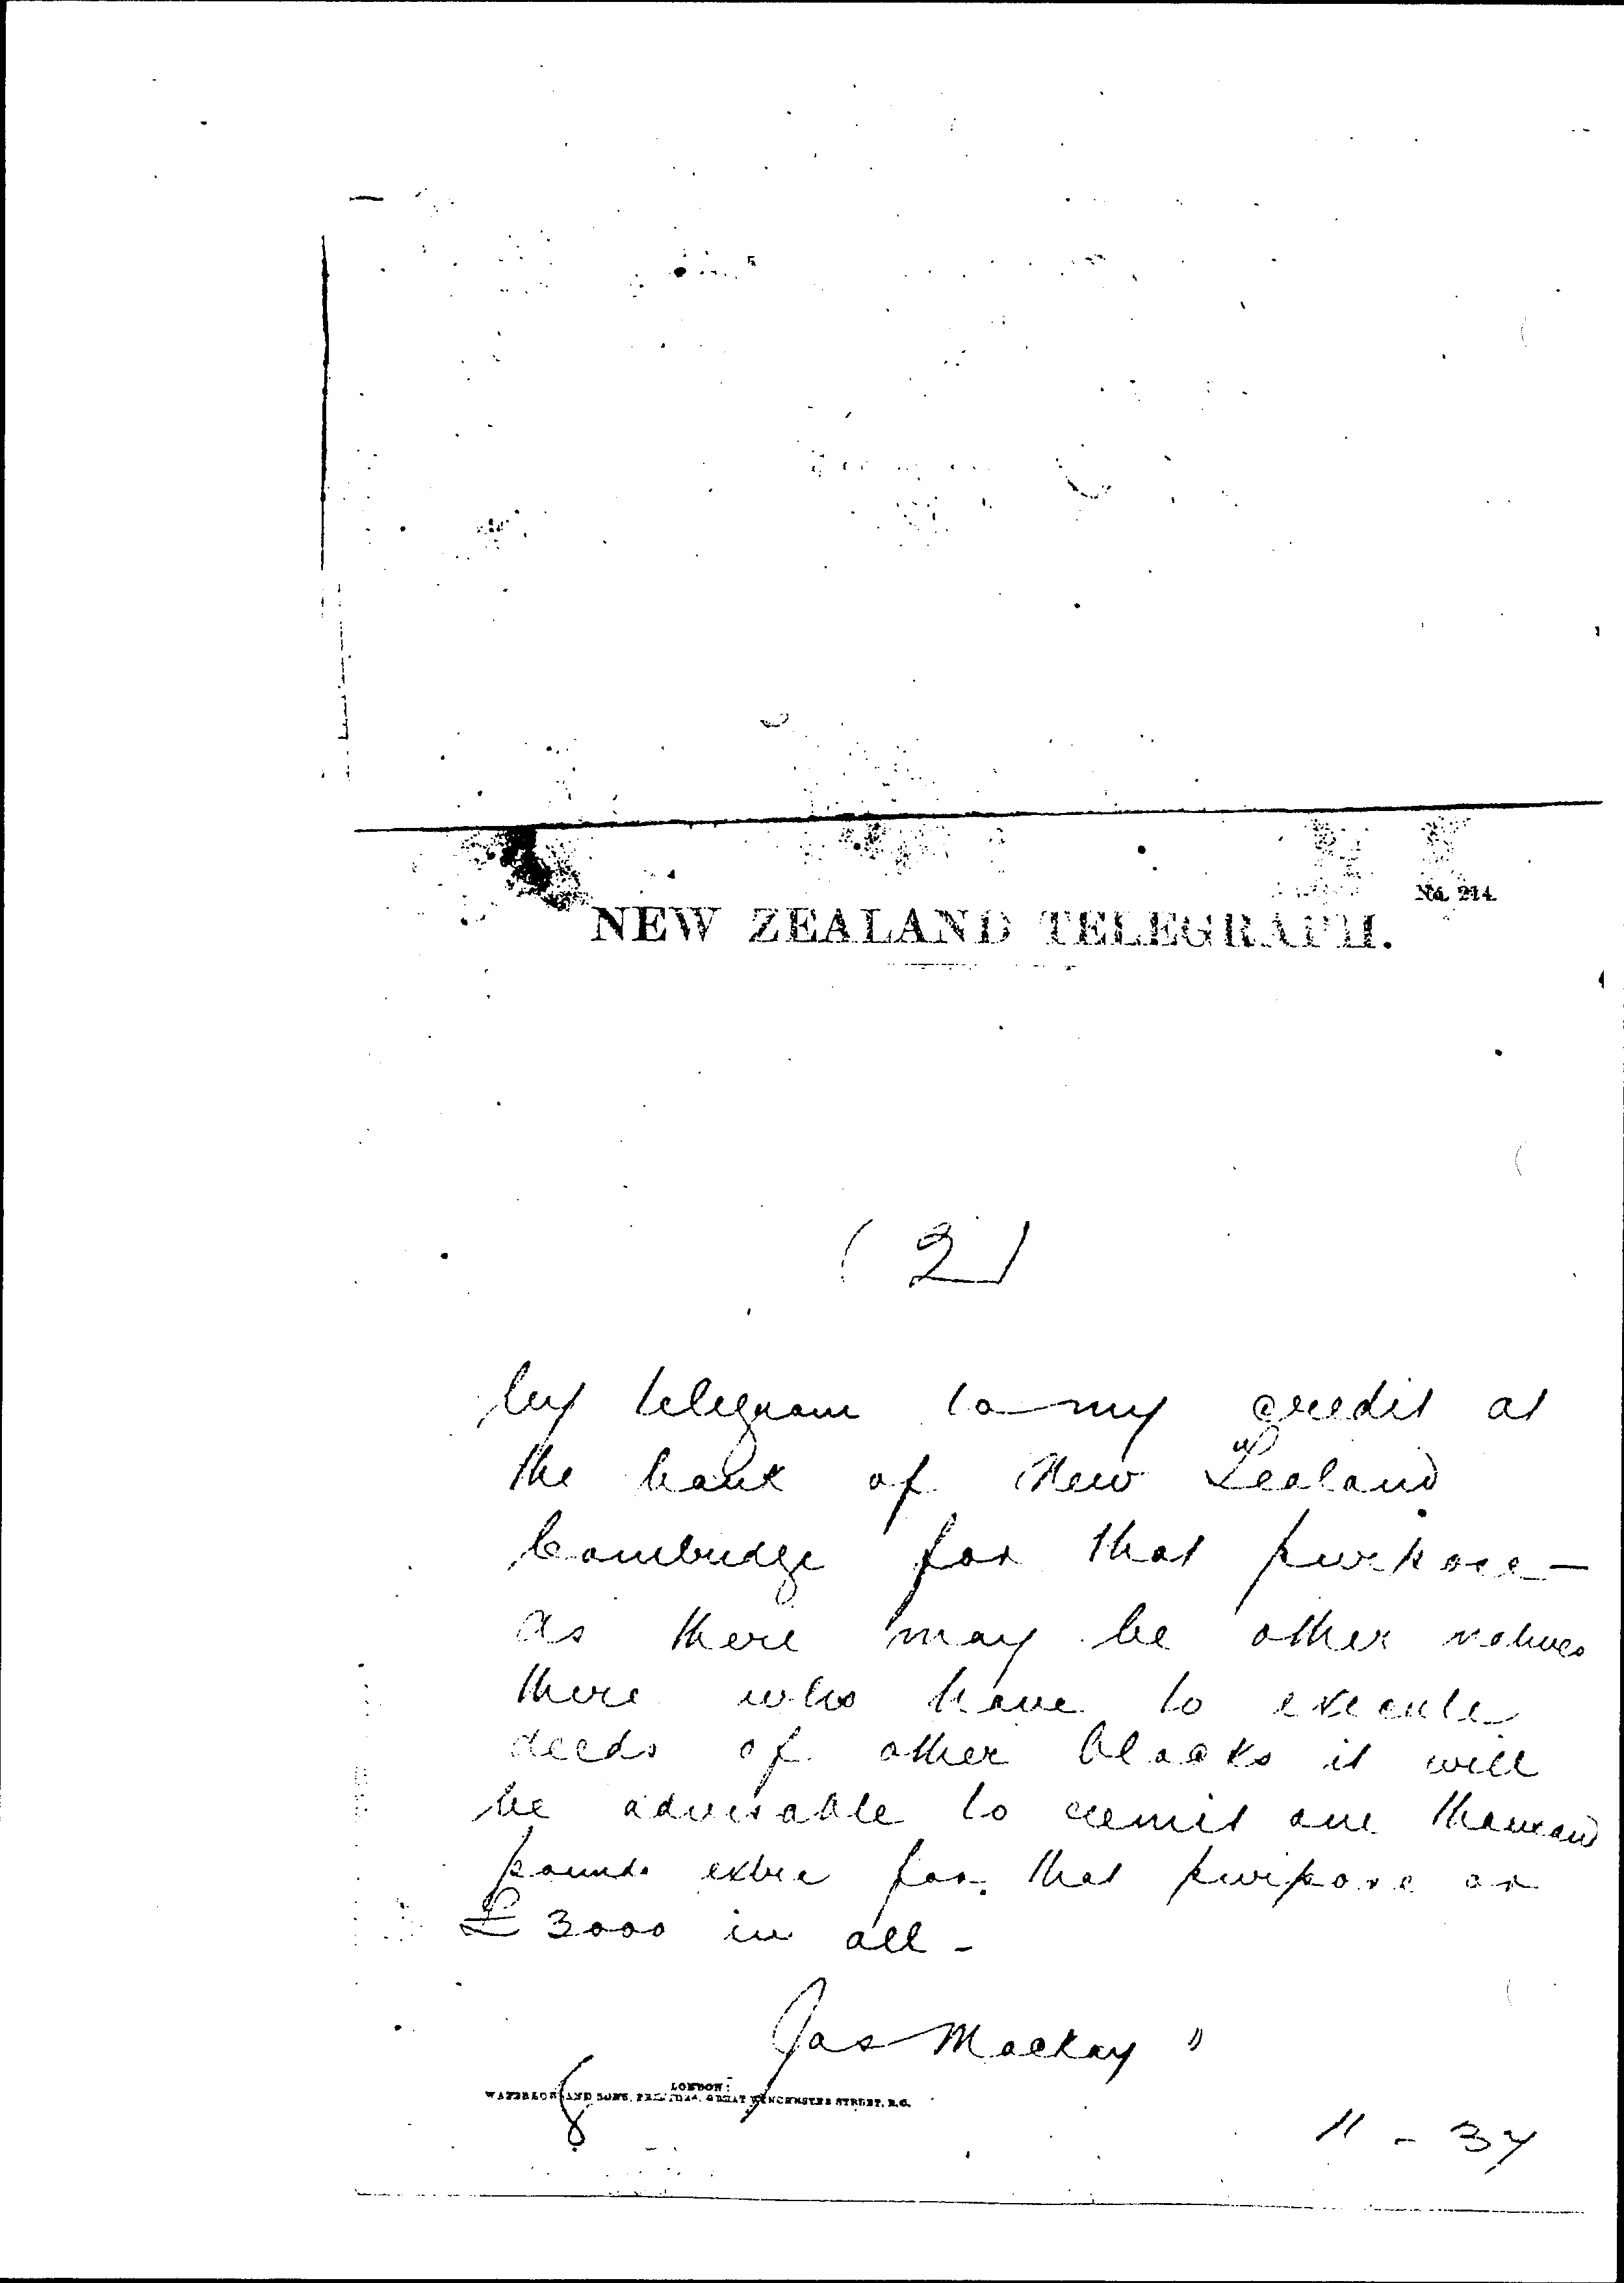 No. 214.
NEW ZEALAND TELEGRAPH.
(2)
by telegram to my credit at
the bank of New Zealand
Cambridge for that purpose —
as there may be other natives
there who have to execute
deeds of other blocks it will
be advisable to remit one thousand
pounds extra for that purpose or
£3000 in all -
Jas Mackay "
LONDON:
WATERLOW AND SONS, PRINTERS, GREAT WINCHESTER STREET, E.C.
11 - 37